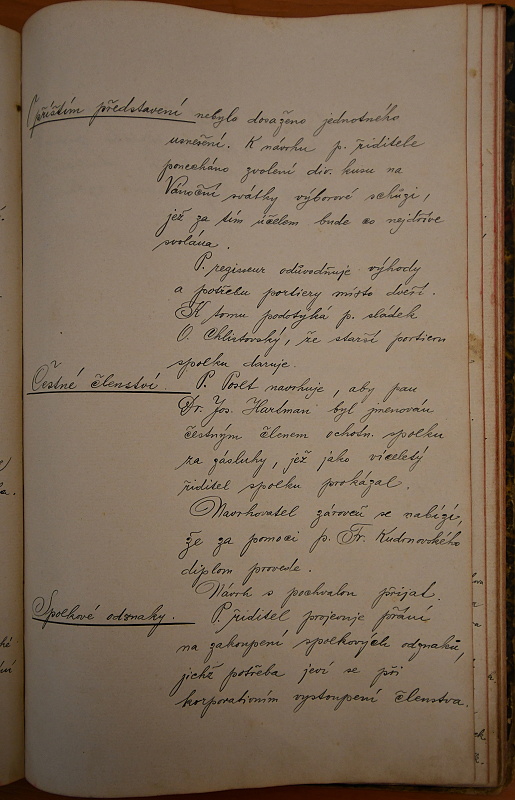 O příštím představení nebylo dosaženo jednotného
usnešení. K návrhu p. řiditele
ponecháno zvolení div. kusu na
Vánoční svátky výborové schůzi,
jež za tím účelem bude co nejdříve
svolána.
P. regisseur odůvodňuje výhody
a potřebu portiery místo dveří.
K tomu podotýká p. sládek
O. Chlistovský, že starší portieru
spolku daruje.
Čestné členství. P. Poslt navrhuje, aby pan
Dr. Jos. Hartman byl jmenován
čestným členem ochotn. spolku
za zásluhy, jež jako víceletý
řiditel spolku prokázal.
Navrhovatel zároveň se nabízí,
že za pomoci p. Fr. Kudrnovského
diplom provede.
Návrh s pochvalou přijat.
Spolkové odznaky. P. řiditel projevuje přání
na zakoupení spolkových odznaků,
jichž potřeba jeví se při
korporativním vystoupení členstva.